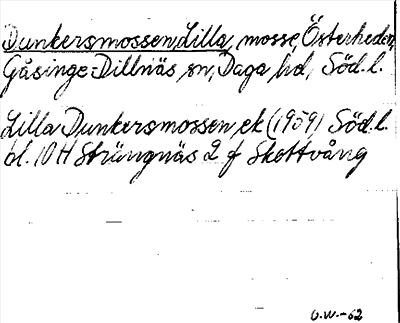 Dunkersmossen, Lilla, mosse, Österheden,
Gåsinge-Dillnäs sn, Daga hd, Söd.l.
Lilla Dunkersmossen, ek (1959) Söd.l.
bl. 10H Strängnäs 2 f Skottvång
O.W.-62